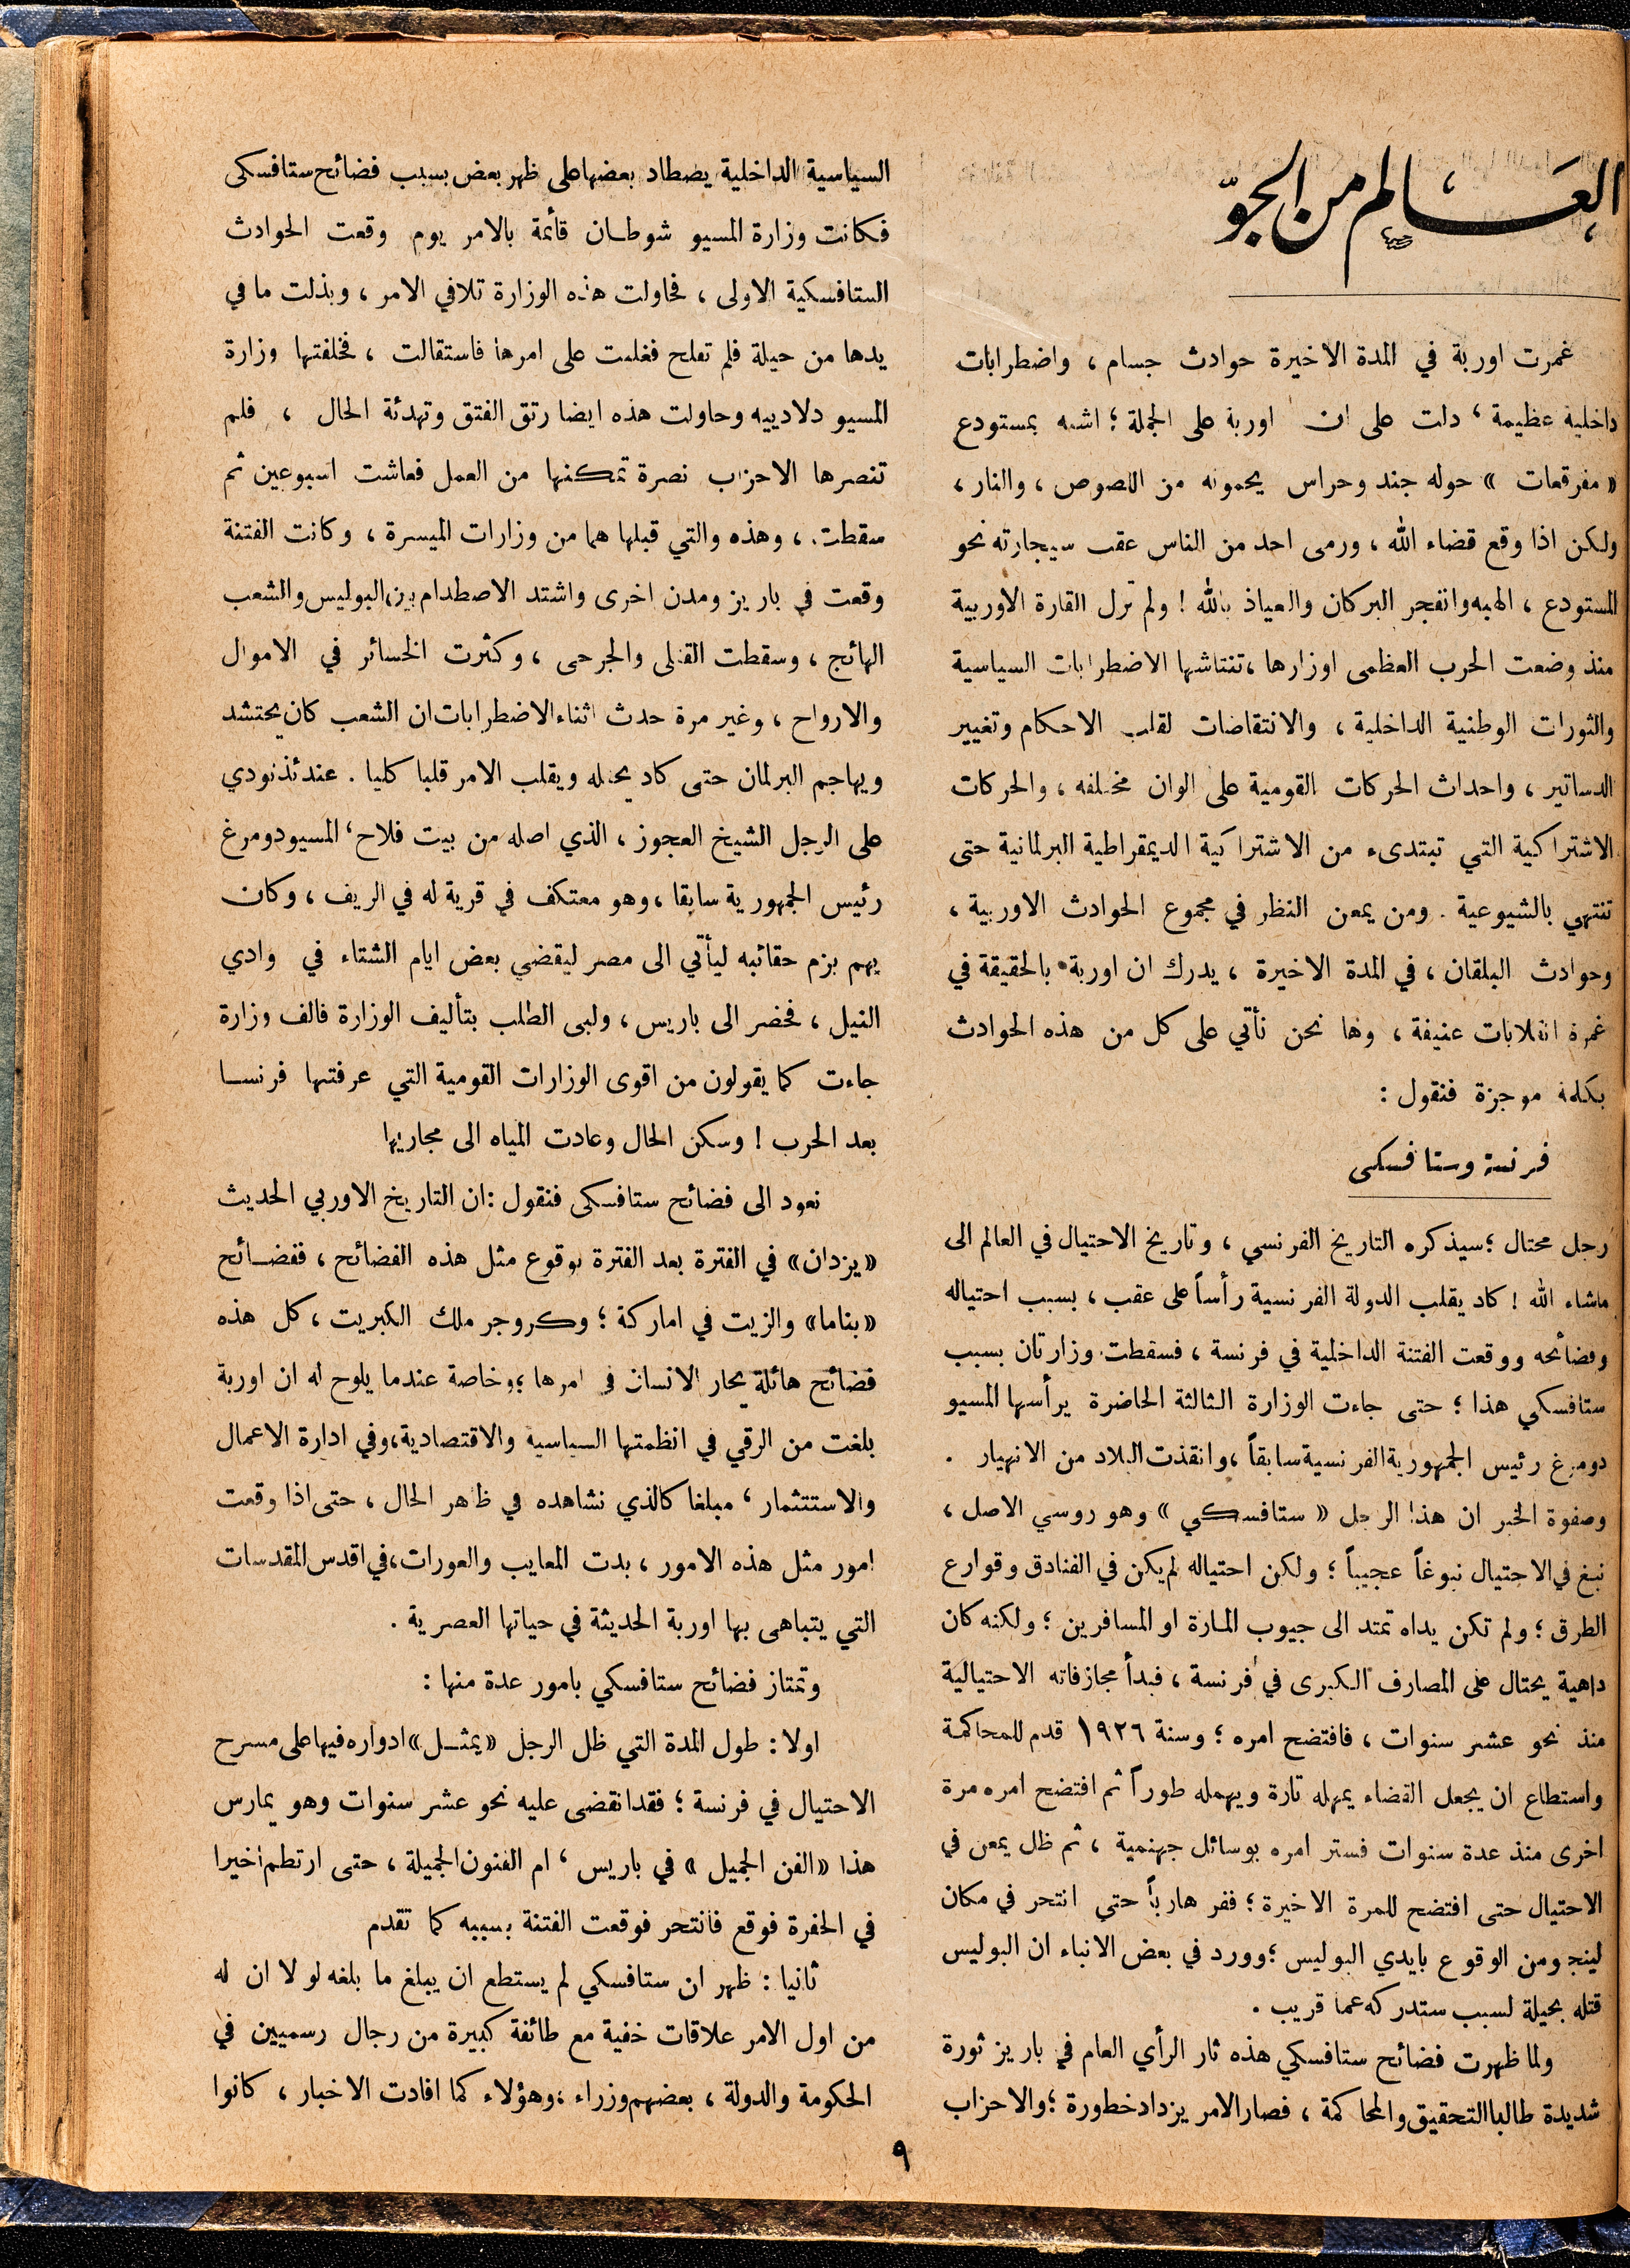 العالم من الجوّ
غمرت اوربة في المدة الاخيرة حوادث جسام ، واضطرابات
داخلية عظيمة ، دلت على ان اوربة على الجملة ؛ اشبه بمستودع
« مفرقعات » حوله جند وحراس يحمونه من اللصوص ، والنار ،
ولكن اذا وقع قضاء الله ، ورمى احد من الناس عقب سيجارته نحو
المستودع ، الهبه وانفجر البركان والعياذ بالله ! ولم تزل القارة الاوربية
منذ وضعت الحرب العظمى اوزارها ، تنتاشها الاضطرابات السياسية
والثورات الوطنية الداخلية ، والانتقاضات لقلب الاحكام وتغيير
الدساتير ، واحداث الحركات القومية على الوان مختلفه ، والحركات
الاشتراكية التي تبتدىء من الاشتراكية الديمقراطية البرلمانية حتى
تنتهي بالشيوعية . ومن يمعن النظر في مجموع الحوادث الاوربية ،
وحوادث البلقان ، في المدة الاخيرة ، يدرك ان اوربة بالحقيقة في
غمرة انقلابات عنيفة ، وها نحن نأتي على كل من هذه الحوادث
بكلمة موجزة فنقول :
فرنسة وستافسكي
رجل محتال ؛ سيذكره التاريخ الفرنسي ، وتاريخ الاحتيال في العالم الى
ماشاء الله ! كاد يقلب الدولة الفرنسية رأساً على عقب ، بسبب احتياله
وفضائحه ووقعت الفتنة الداخلية في فرنسة ، فسقطت وزارتان بسبب
ستافسكي هذا ؛ حتى جاءت الوزارة الثالثة الحاضرة يرأسها المسيو
دومرغ رئيس الجمهورية الفرنسية سابقاً ، وانقذت البلاد من الانهيار .
وصفوة الخبر ان هذا الرجل « ستافسكي » وهو روسي الاصل ،
نبغ في الاحتيال نبوغاً عجيباً ؛ ولكن احتياله لم يكن في الفنادق وقوارع
الطرق ؛ ولم تكن يداه تمتد الى جيوب المارة او المسافرين ؛ ولكنه كان
داهية يحتال على المصارف الكبرى في فرنسة ، فبدأ مجازفاته الاحتيالية
منذ نحو عشر سنوات ، فافتضح امره ؛ وسنة ١٩٢٦ قدم للمحاكمة
واستطاع ان يجعل القضاء يمهله تارة ويهمله طوراً ثم افتضح امره مرة
اخرى منذ عدة سنوات فستر امره بوسائل جهنمية ، ثم ظل يمعن في
الاحتيال حتى افتضح للمرة الاخيرة ؛ ففر هارباً حتي انتحر في مكان
لينجو من الوقوع بايدي البوليس ؛ وورد في بعض الانباء ان البوليس
قتله بحيلة لسبب ستدركه عما قريب .
ولما ظهرت فضائح ستافسكي هذه ثار الرأي العام في باريز ثورة
شديدة طالبا التحقيق والمحاكمة ، فصار الامر يزداد خطورة ؛ والاحزاب
السياسية الداخلية يصطاد بعضها على ظهر بعض بسبب فضائح ستافسكي
فكانت وزارة المسيو شوطان قائمة بالامر يوم وقعت الحوادث
الستافسكية الاولى ، فحاولت هذه الوزارة تلافي الامر ، وبذلت ما في
يدها من حيلة فلم تفلح فغلبت على امرها فاستقالت ، فخلفتها وزارة
المسيو دلادييه وحاولت هذه ايضا رتق الفتق وتهدئة الحال ، فلم
تنصرها الاحزاب نصرة تمكنها من العمل فعاشت اسبوعين ثم
سقطت ، وهذه والتي قبلها هما من وزارات الميسرة ، وكانت الفتنة
وقعت في باريز ومدن اخرى واشتد الاصطدام بين البوليس والشعب
الهائج ، وسقطت القتلى والجرحى ، وكثرت الخسائر في الاموال
والارواح ، وغير مرة حدث اثناء الاضطرابات ان الشعب كان يحتشد
ويهاجم البرلمان حتى كاد يحتله ويقلب الامر قلبا كليا . عندئذ نودي
على الرجل الشيخ العجوز ، الذي اصله من بيت فلاح ، المسيو دومرغ
رئيس الجمهورية سابقا ، وهو معتكف في قرية له في الريف ، وكان
يهم بزم حقائبه ليأتي الى مصر ليقضي بعض ايام الشتاء في وادي
النيل ، فحضر الى باريس ، ولبى الطلب بتأليف الوزارة فالف وزارة
جاءت كما يقولون من اقوى الوزارات القومية التي عرفتها فرنسا
بعد الحرب ! وسكن الحال وعادت المياه الى مجاريها
نعود الى فضائح ستافسكي فنقول : ان التاريخ الاوربي الحديث
« يزدان » في الفترة بعد الفترة بوقوع مثل هذه الفضائح ، ففضائح
« بناما » والزيت في اماركة ؛ وكروجر ملك الكبريت ، كل هذه
فضائح هائلة يحار الانسان في امرها ؛ وخاصة عندما يلوح له ان اوربة
بلغت من الرقي في انظمتها السياسية والاقتصادية ، وفي ادارة الاعمال
والاستتثمار ، مبلغا كالذي نشاهده في ظاهر الحال ، حتى اذا وقعت
امور مثل هذه الامور ، بدت المعايب والعورات ، في اقدس المقدسات
التي يتباهى بها اوربة الحديثة في حياتها العصرية .
وتمتاز فضائح ستافسكي بامور عدة منها :
اولا : طول المدة التي ظل الرجل « يمثل » ادواره فيها على مسرح
الاحتيال في فرنسة ؛ فقد انقضى عليه نحو عشر سنوات وهو يمارس
هذا « الفن الجميل » في باريس ، ام الفنون الجميلة ، حتى ارتطم اخيرا
في الحفرة فوقع فانتحر فوقعت الفتنة بسببه كما تقدم
ثانيا : ظهر ان ستافسكي لم يستطع ان يبلغ ما بلغه لولا ان له
من اول الامر علاقات خفية مع طائفة كبيرة من رجال رسميين في
الحكومة والدولة ، بعضهم وزراء ، وهؤلاء كما افادت الاخبار ، كانوا
٩